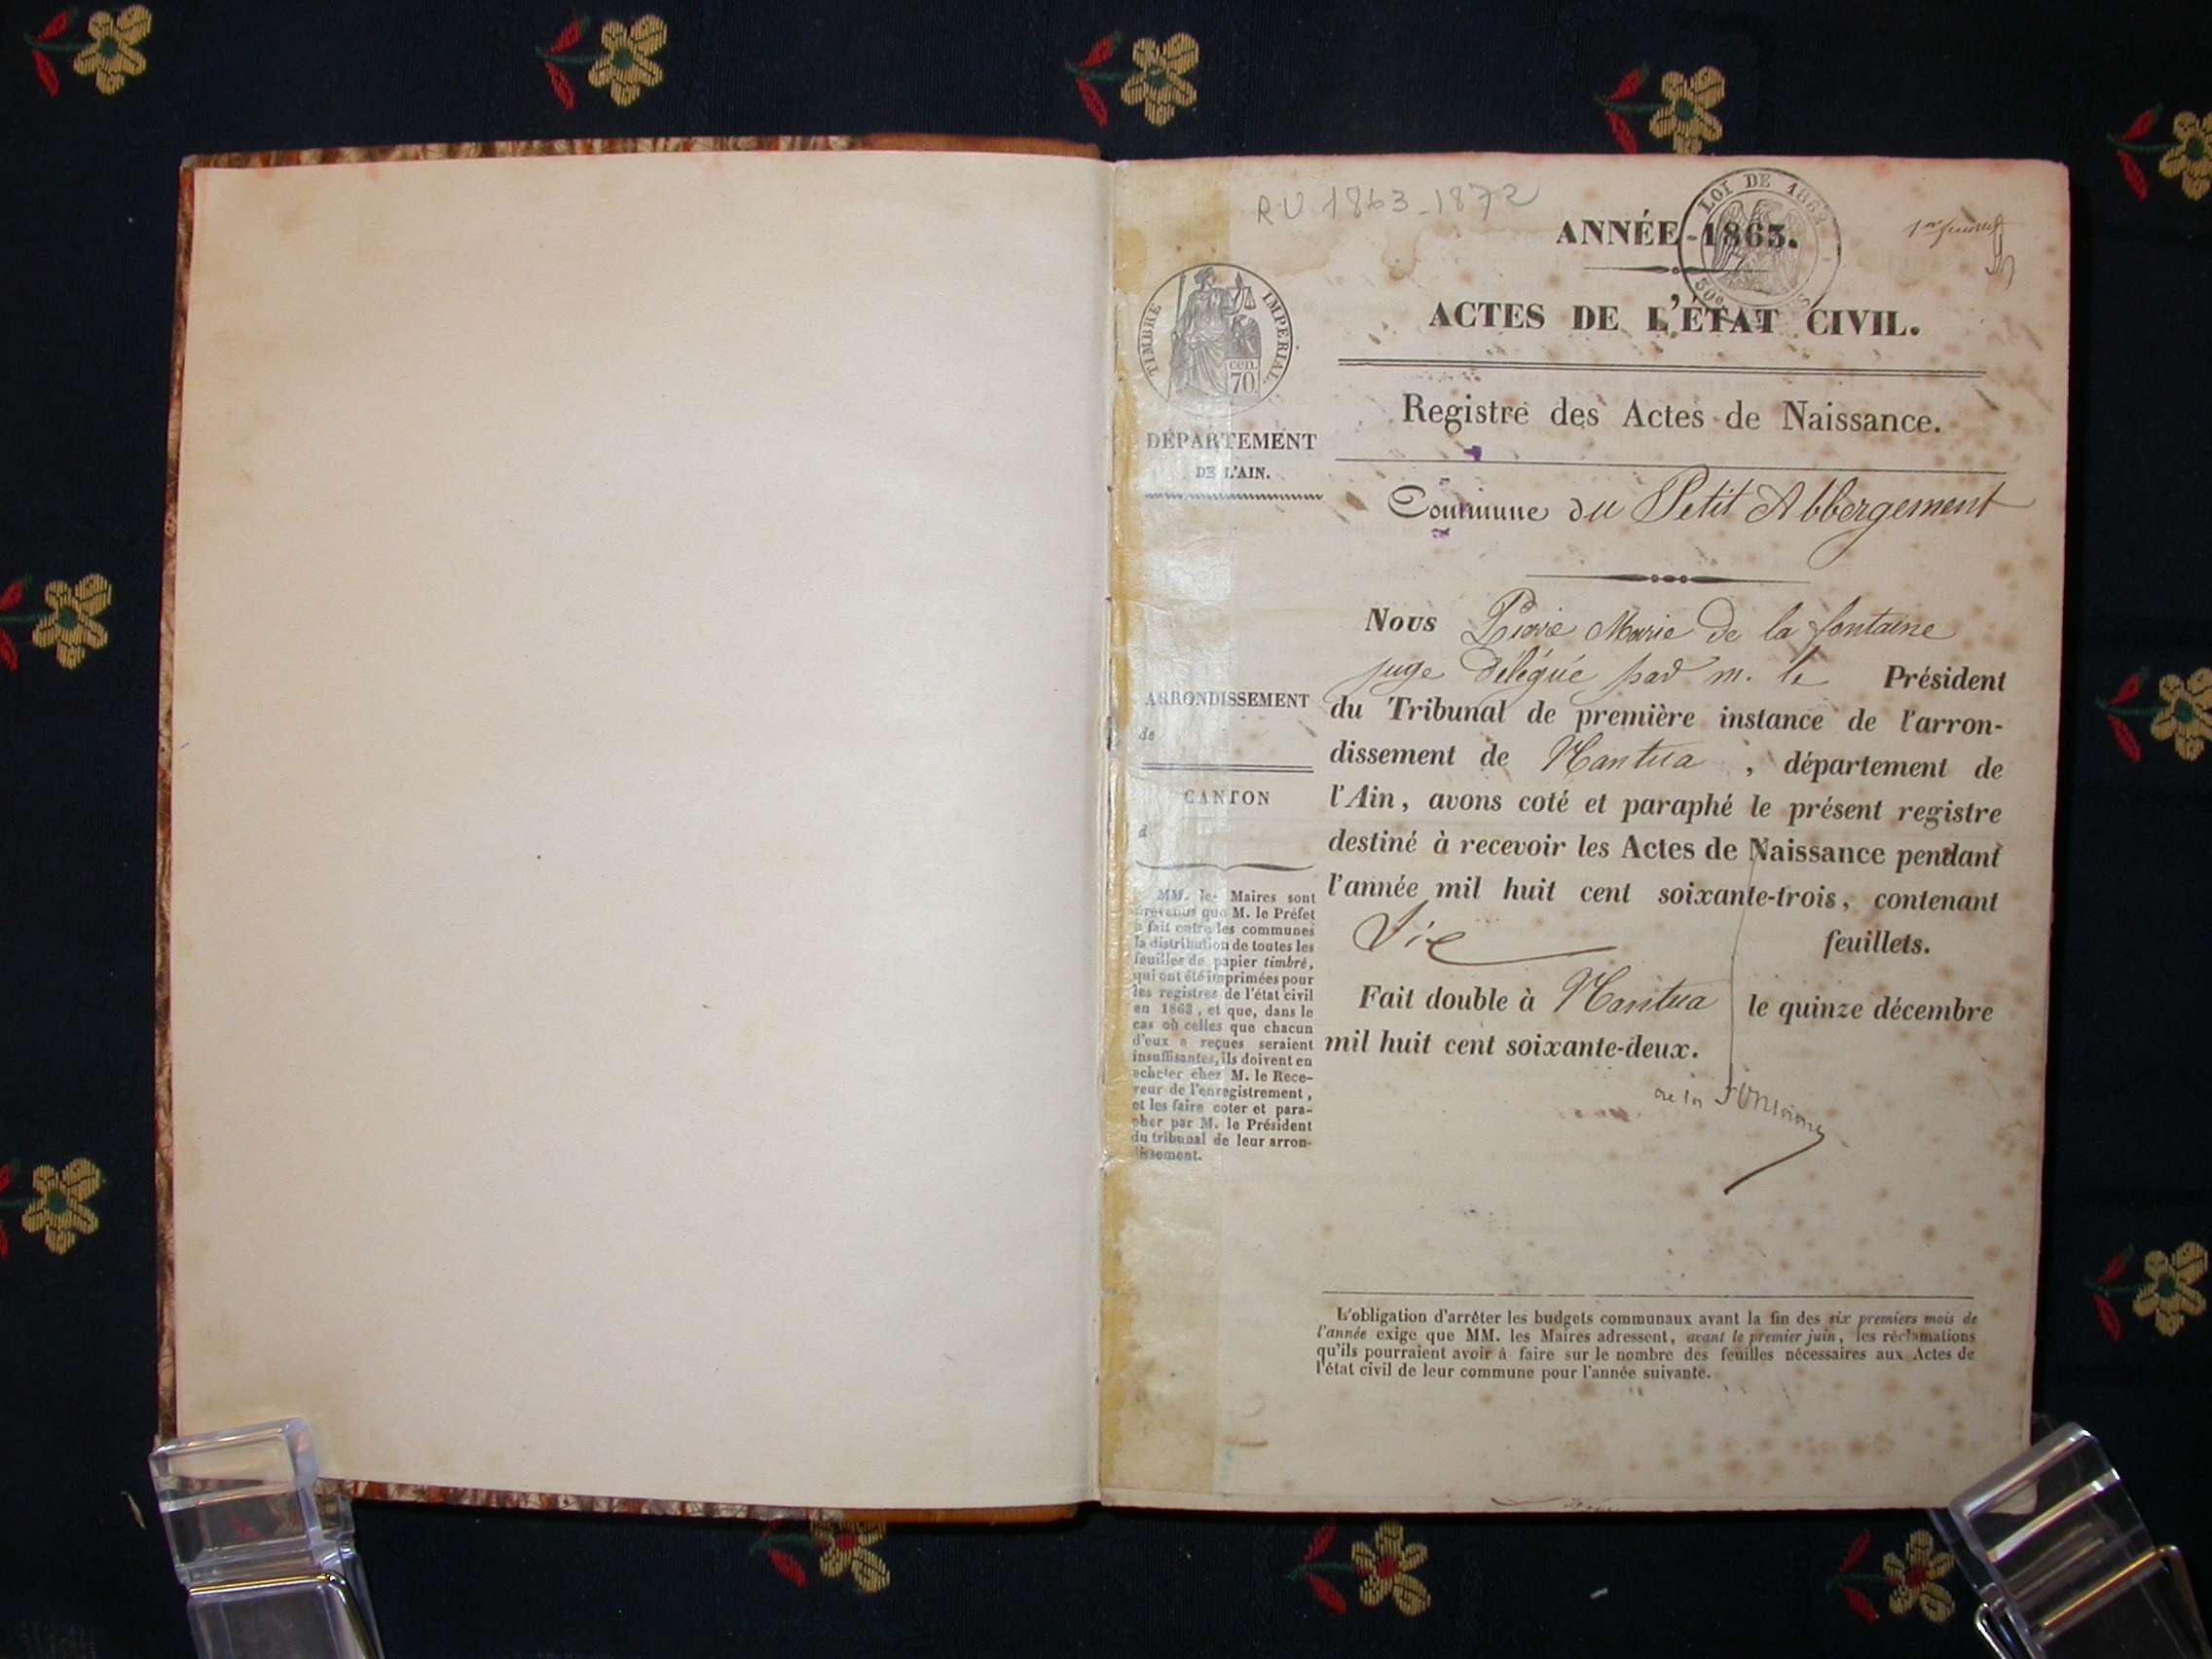 R.V 1863-1872
LOI DE 1862
50c
ANNÉE 1863.
1er feuillet
ACTES DE L'ÉTAT CIVIL.
TIMBRE IMPERIAL.
cen.
70
DÉPARTEMENT
DE L'AIN.
Registre des Actes de Naissance.
Commune du Petit Abbergement
ARRONDISSEMENT
de
CANTON
d
MM. les Maires sont
prévenus que M. le Préfet
a fait entre les communes
la distribution de toutes les
feuilles de papier timbré,
qui ont été imprimées pour
les registres de l'état civil
en 1863, et que, dans le
cas où celles que chacun
d'eux a reçues seraient
insuffisantes, ils doivent en
acheter chez M. le Rece-
veur de l'enregistrement,
et les faire coter et para-
pher par M. le Président
du tribunal de leur arron-
dissement.
Nous Pierre Marie de la fontaine
juge délégué par m. le Président
du Tribunal de première instance de l'arron-
dissement de Nantua, département de
l'Ain, avons coté et paraphé le présent registre
destiné à recevoir les Actes de Naissance pendant
l'année mil huit cent soixante-trois, contenant
Six feuillets.
Fait double à Nantua le quinze décembre
mil huit cent soixante-deux.
de la fontaine
L'obligation d'arrêter les budgets communaux avant la fin des six premiers mois de
l'année exige que MM. les Maires adressent, avant le premier juin, les réclamations
qu'ils pourraient avoir à faire sur le nombre des feuilles nécessaires aux Actes de
l'état civil de leur commune pour l'année suivante.